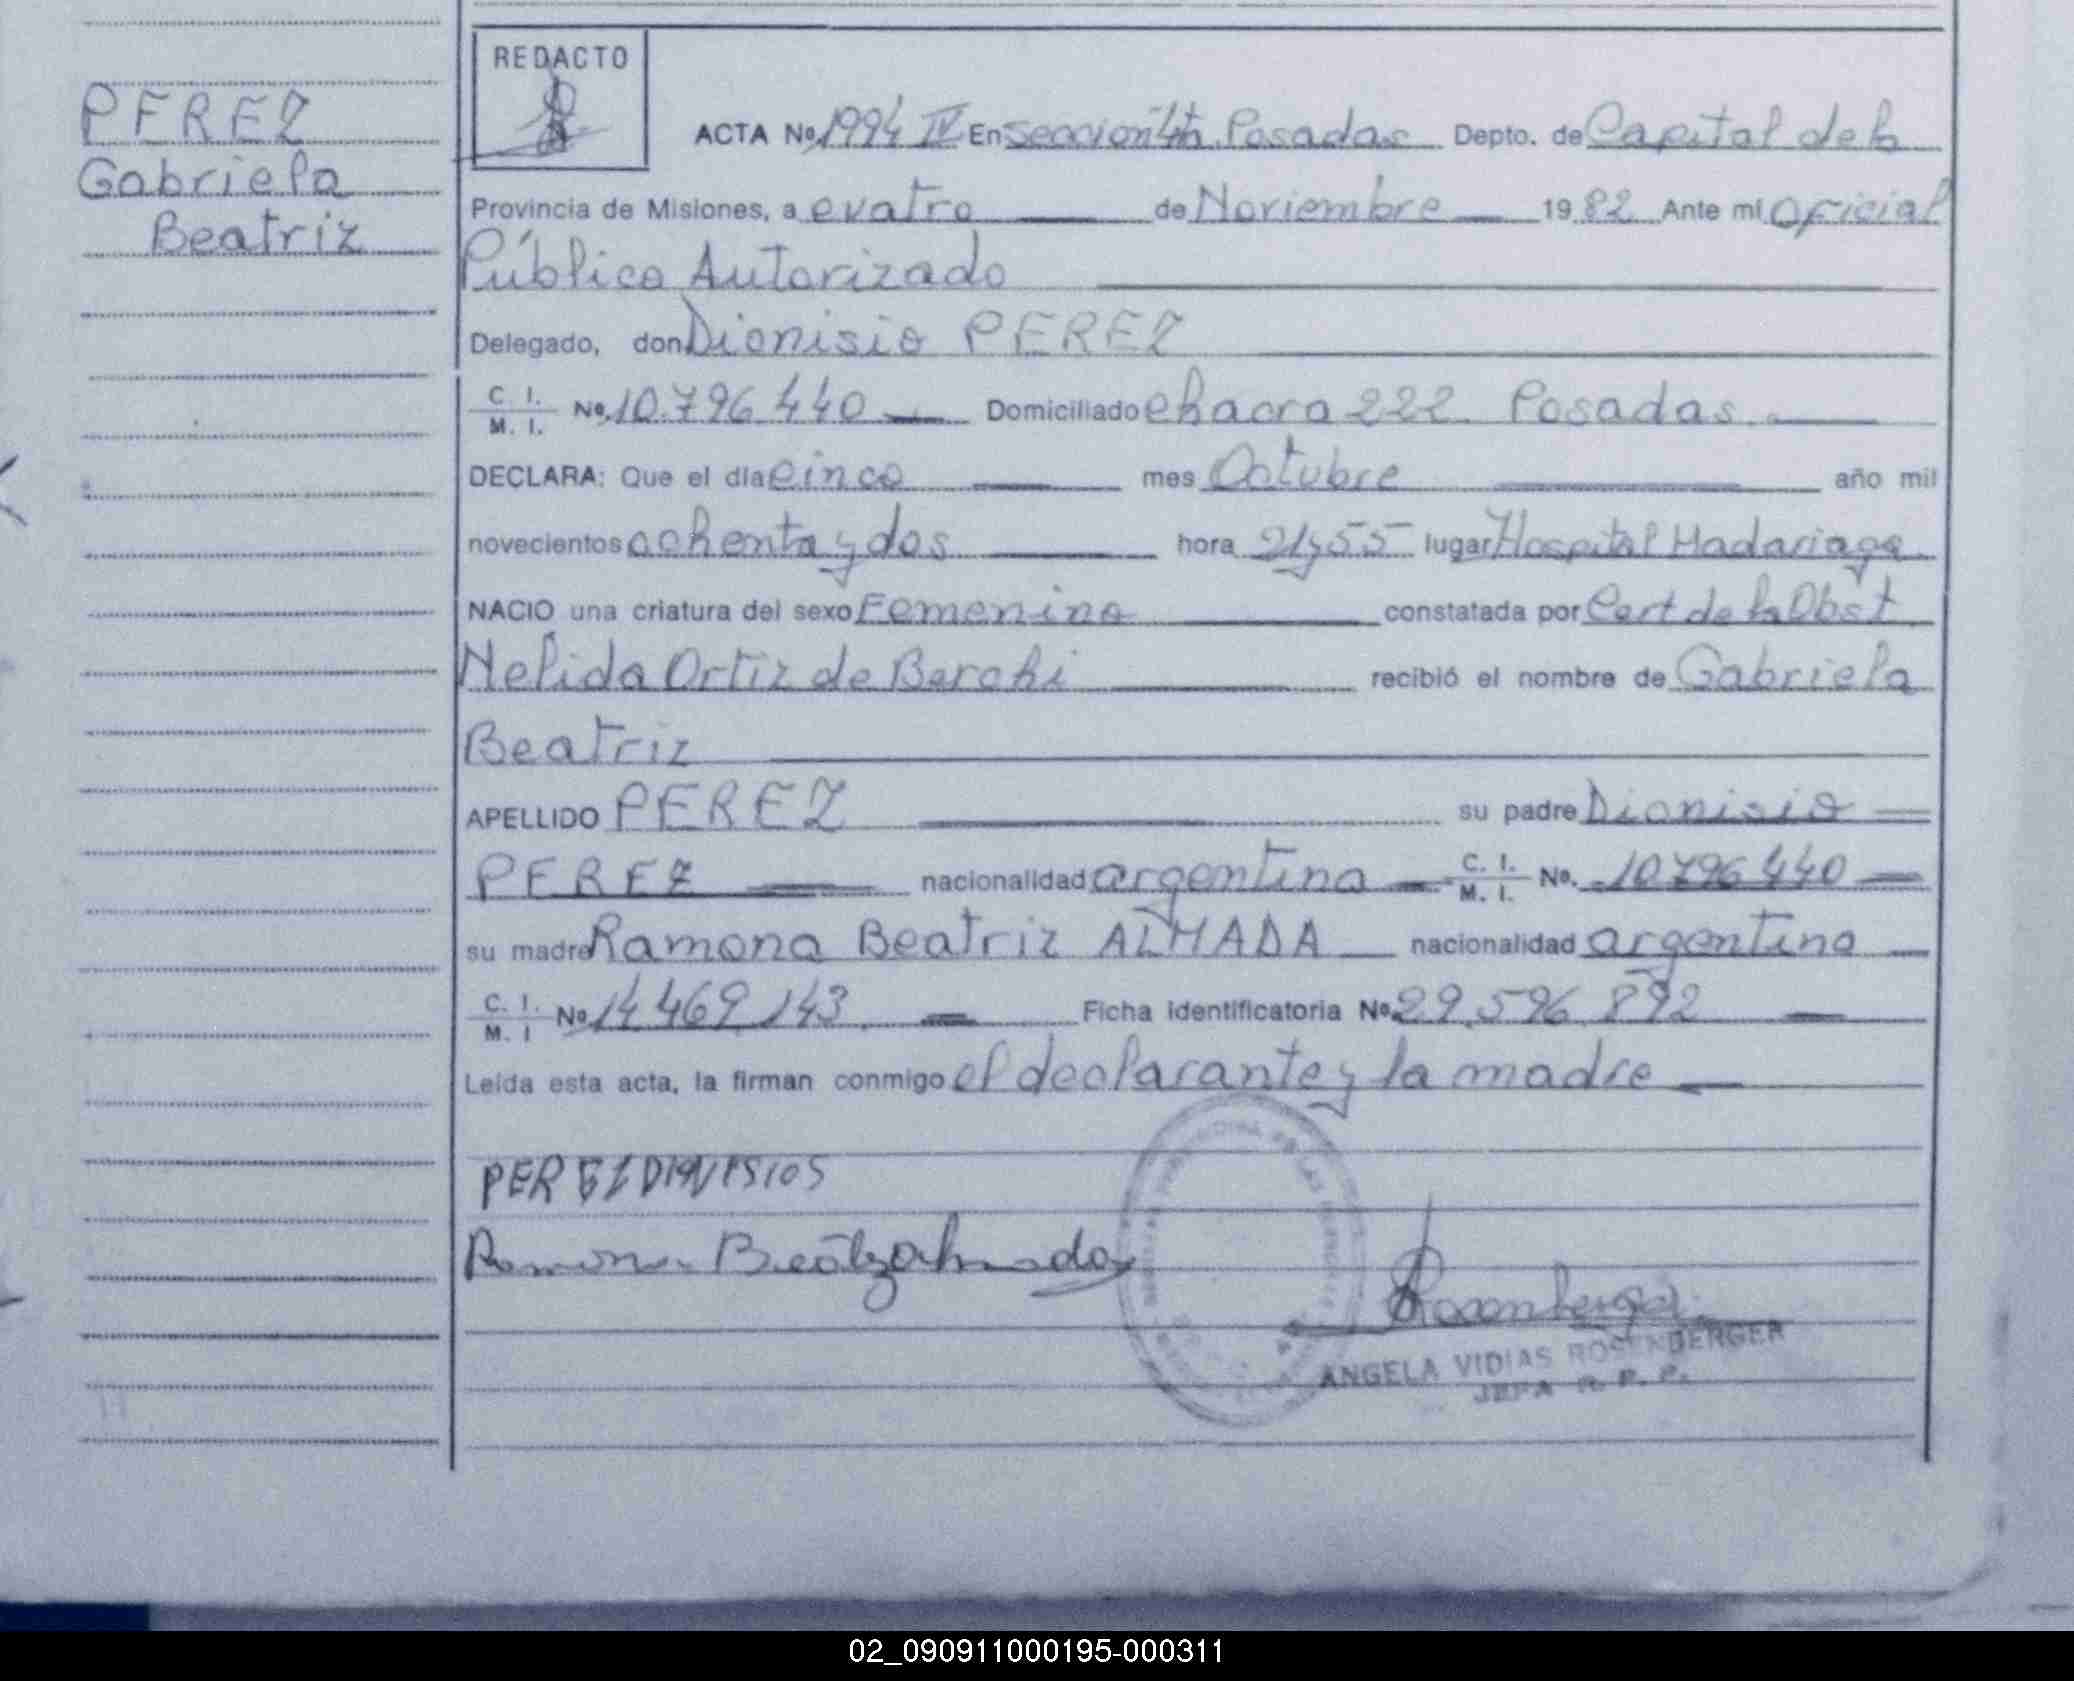 PEREZ
Gabriela
Beatriz
REDACTO
ACTA No. 1994 IV En Seccion 4ta. Posadas Depto. de Capital de la
Provincia de Misiones, a cuatro de Noviembre 1982 Ante mi Oficial
Público Autorizado
Delegado, don Dionisio PEREZ
C. I. / M. I. No. 10.796.440 Domiciliado chacra 222. Posadas.
DECLARA: Que el día cinco mes Octubre año mil
novecientos ochenta y dos hora 21y55 lugar Hospital Madariaga
NACIO una criatura del sexo Femenino constatada por Cert de la Obst
Nelida Ortiz de Berchi recibió el nombre de Gabriela
Beatriz
APELLIDO PEREZ su padre Dionisio
PEREZ nacionalidad argentina C. I. / M. I. No. 10.796.440
su madre Ramona Beatriz ALMADA nacionalidad argentina
C. I. / M. I No. 14.469.143. Ficha identificatoria No. 29.596.892
Leída esta acta, la firman conmigo el declarante y la madre
PEREZ DIONISIOS
Ramona Beatriz Almada
Rosenberger
ANGELA VIDIAS ROSENBERGER
JEFA R. P. P.
02_090911000195-000311